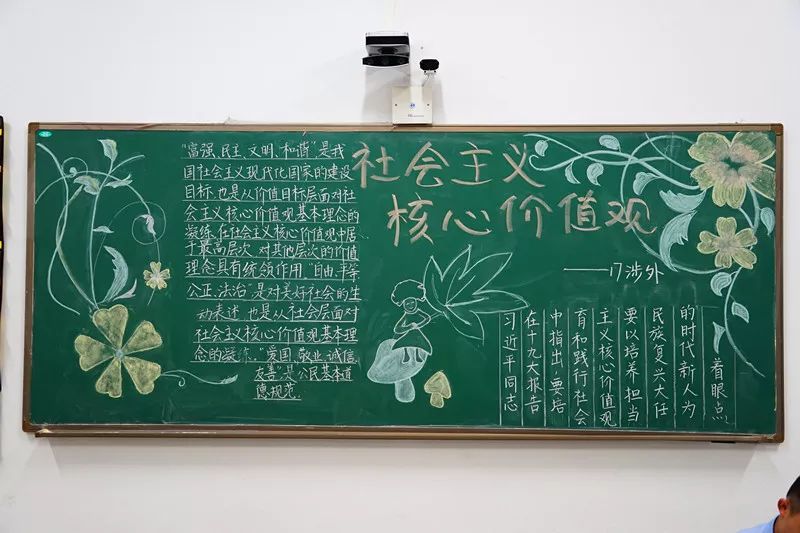 社会主义
核心价值观
——17涉外
"富强、民主、文明、和谐"是我
国社会主义现代化国家的建设
目标,也是从价值目标层面对社
会主义核心价值观基本理念的
凝练,在社会主义核心价值观中居
于最高层次,对其他层次的价值
理念具有统领作用。"自由、平等
公正、法治"是对美好社会的生
动表述,也是从社会层面对
社会主义核心价值观基本理
念的凝练。"爱国、敬业、诚信
友善"是公民基本道
德规范.
习近平同志
在十九大报告
中指出,要培
育和践行社会
主义核心价值观
要以培养担当
民族复兴大任
的时代新人为
着眼点.